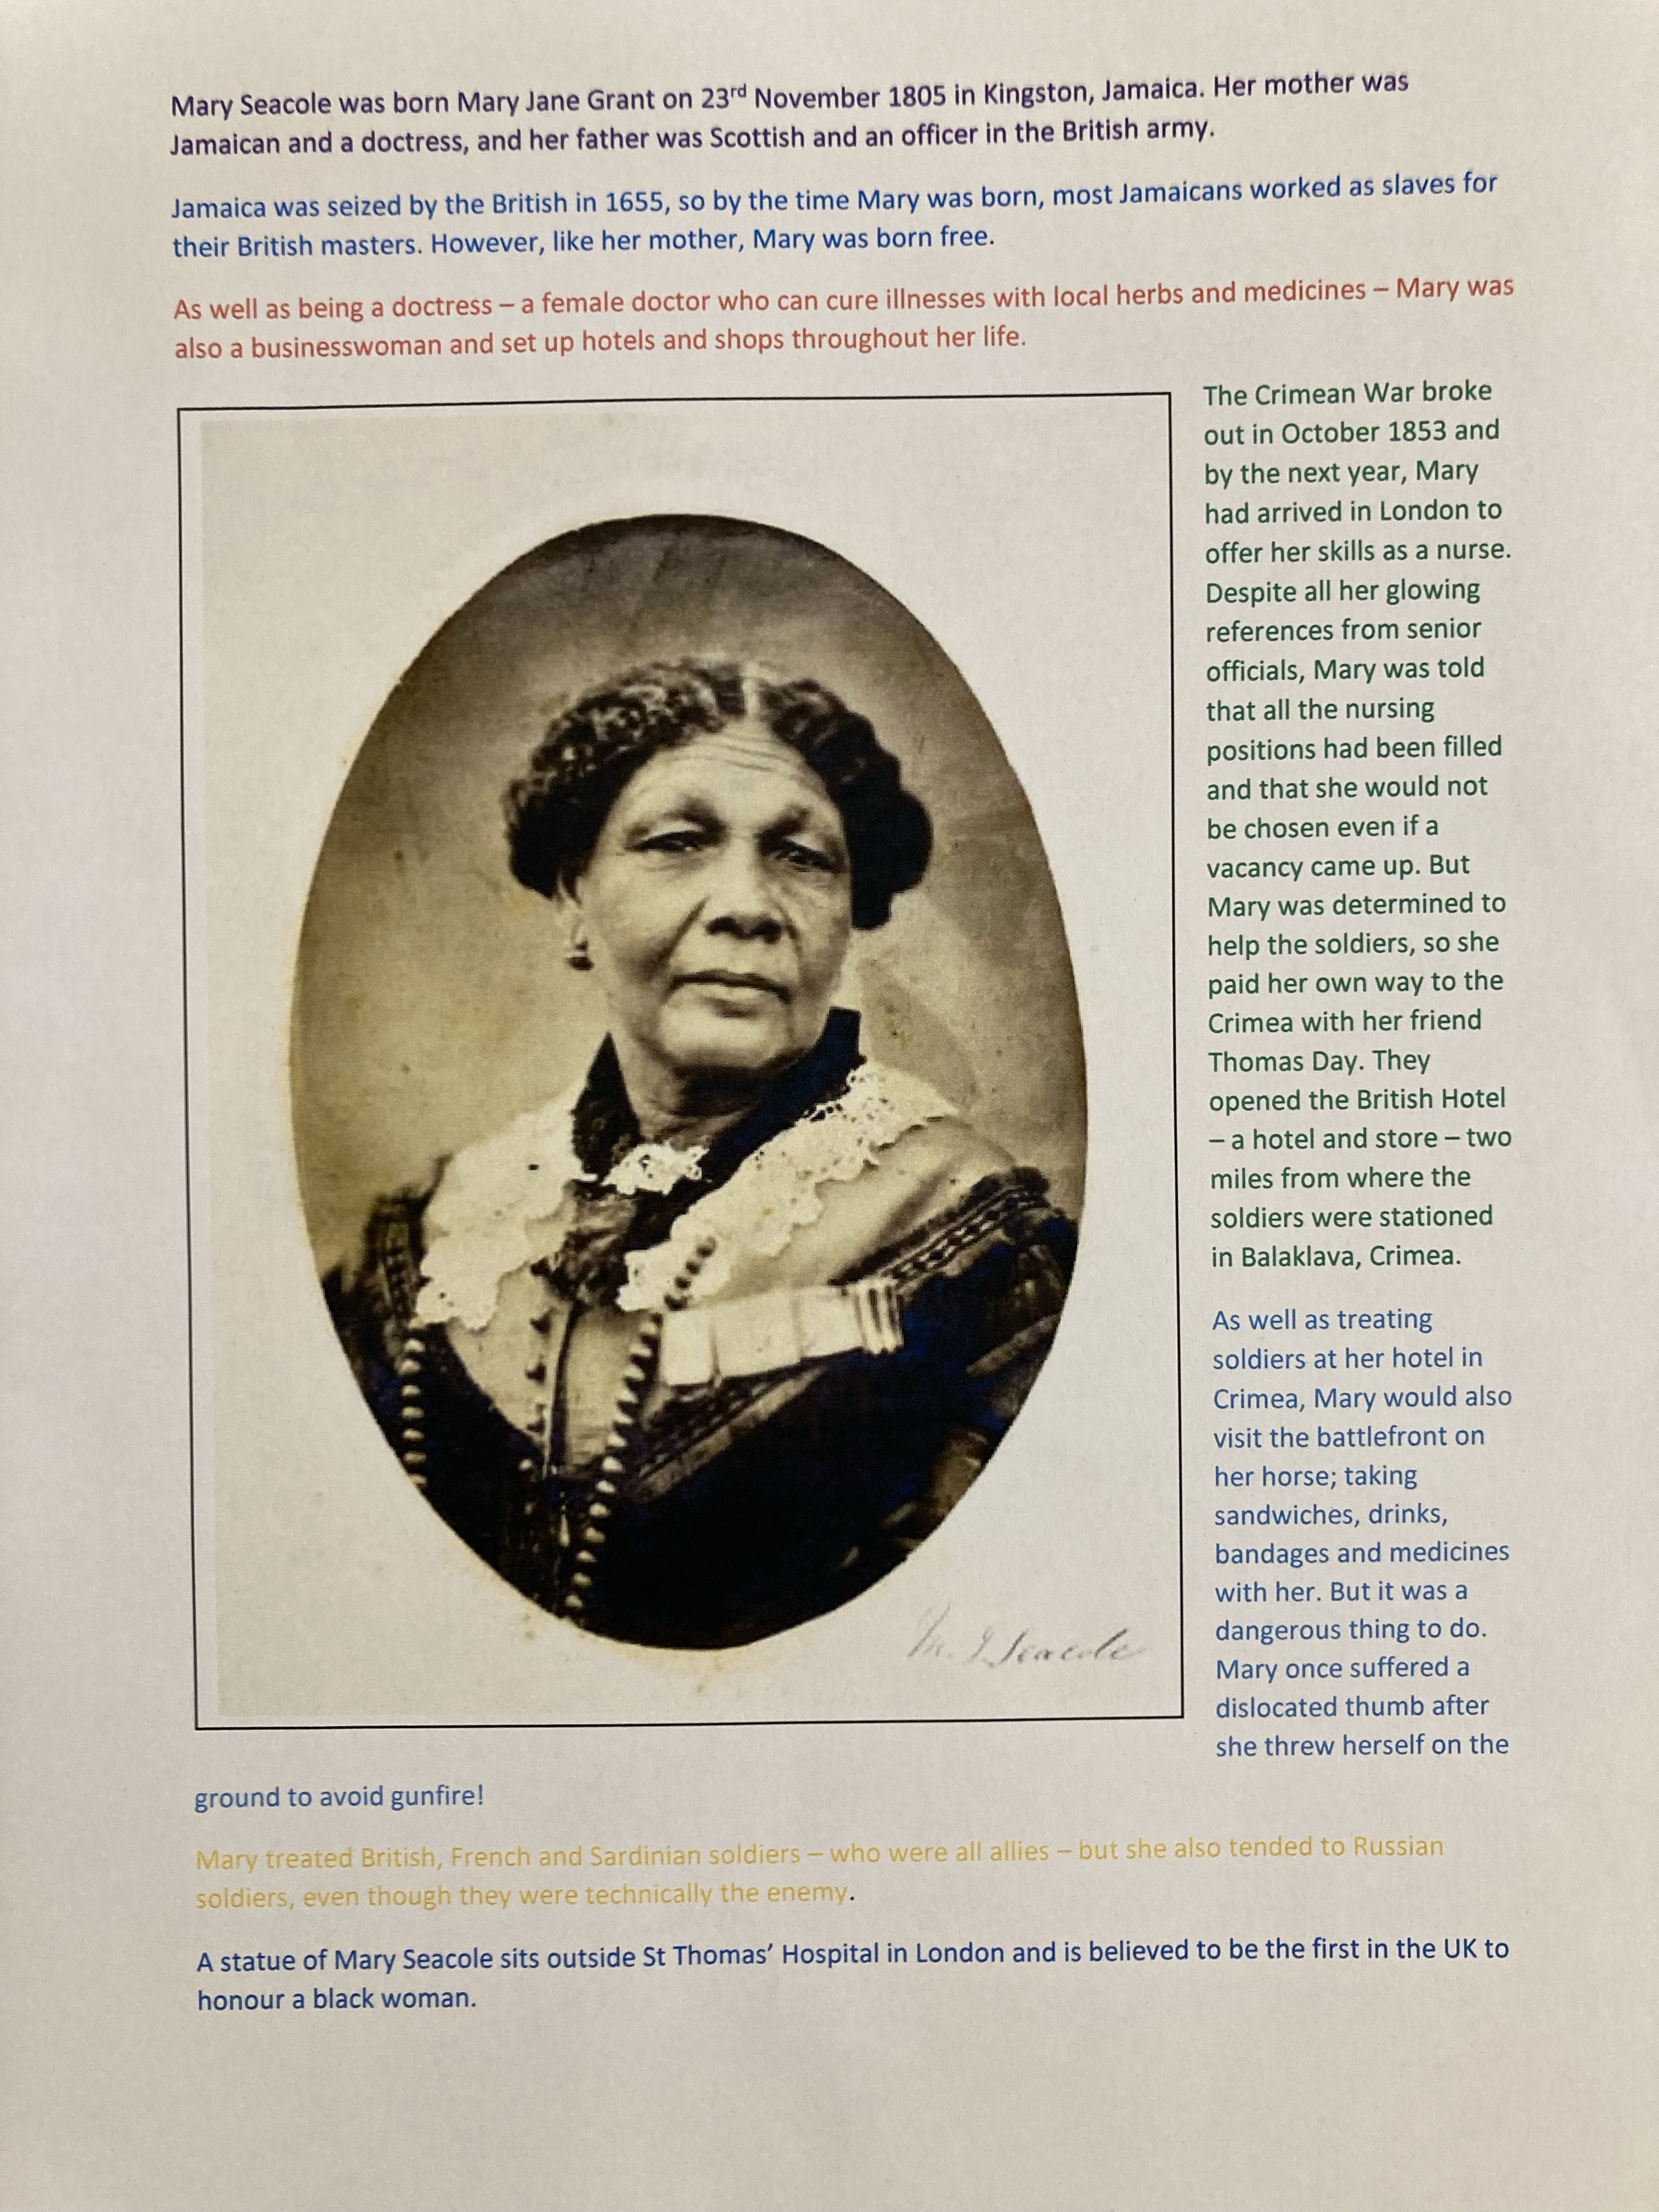 Mary Seacole was born Mary Jane Grant on 23rd November 1805 in Kingston, Jamaica. Her mother was
Jamaican and a doctress, and her father was Scottish and an officer in the British army.
Jamaica was seized by the British in 1655, so by the time Mary was born, most Jamaicans worked as slaves for
their British masters. However, like her mother, Mary was born free.
As well as being a doctress – a female doctor who can cure illnesses with local herbs and medicines – Mary was
also a businesswoman and set up hotels and shops throughout her life.
The Crimean War broke
out in October 1853 and
by the next year, Mary
had arrived in London to
offer her skills as a nurse.
Despite all her glowing
references from senior
officials, Mary was told
that all the nursing
positions had been filled
and that she would not
be chosen even if a
vacancy came up. But
Mary was determined to
help the soldiers, so she
paid her own way to the
Crimea with her friend
Thomas Day. They
opened the British Hotel
– a hotel and store – two
miles from where the
soldiers were stationed
in Balaklava, Crimea.
As well as treating
soldiers at her hotel in
Crimea, Mary would also
visit the battlefront on
her horse; taking
sandwiches, drinks,
bandages and medicines
with her. But it was a
dangerous thing to do.
Mary once suffered a
dislocated thumb after
she threw herself on the
M. J. Seacole
ground to avoid gunfire!
Mary treated British, French and Sardinian soldiers – who were all allies – but she also tended to Russian
soldiers, even though they were technically the enemy.
A statue of Mary Seacole sits outside St Thomas’ Hospital in London and is believed to be the first in the UK to
honour a black woman.